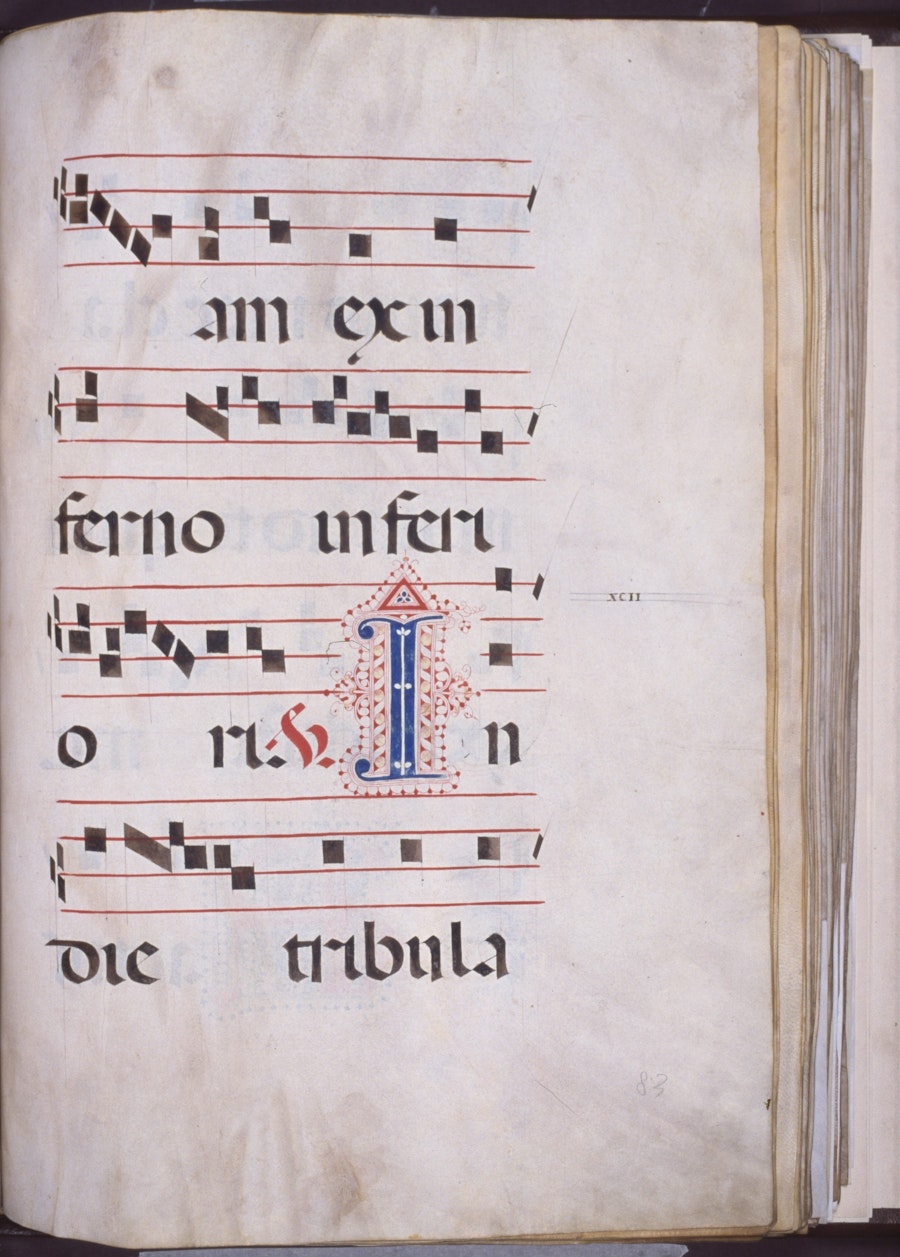 am ex in
ferno inferi
o ri. V. In
xcii
die tribula
83